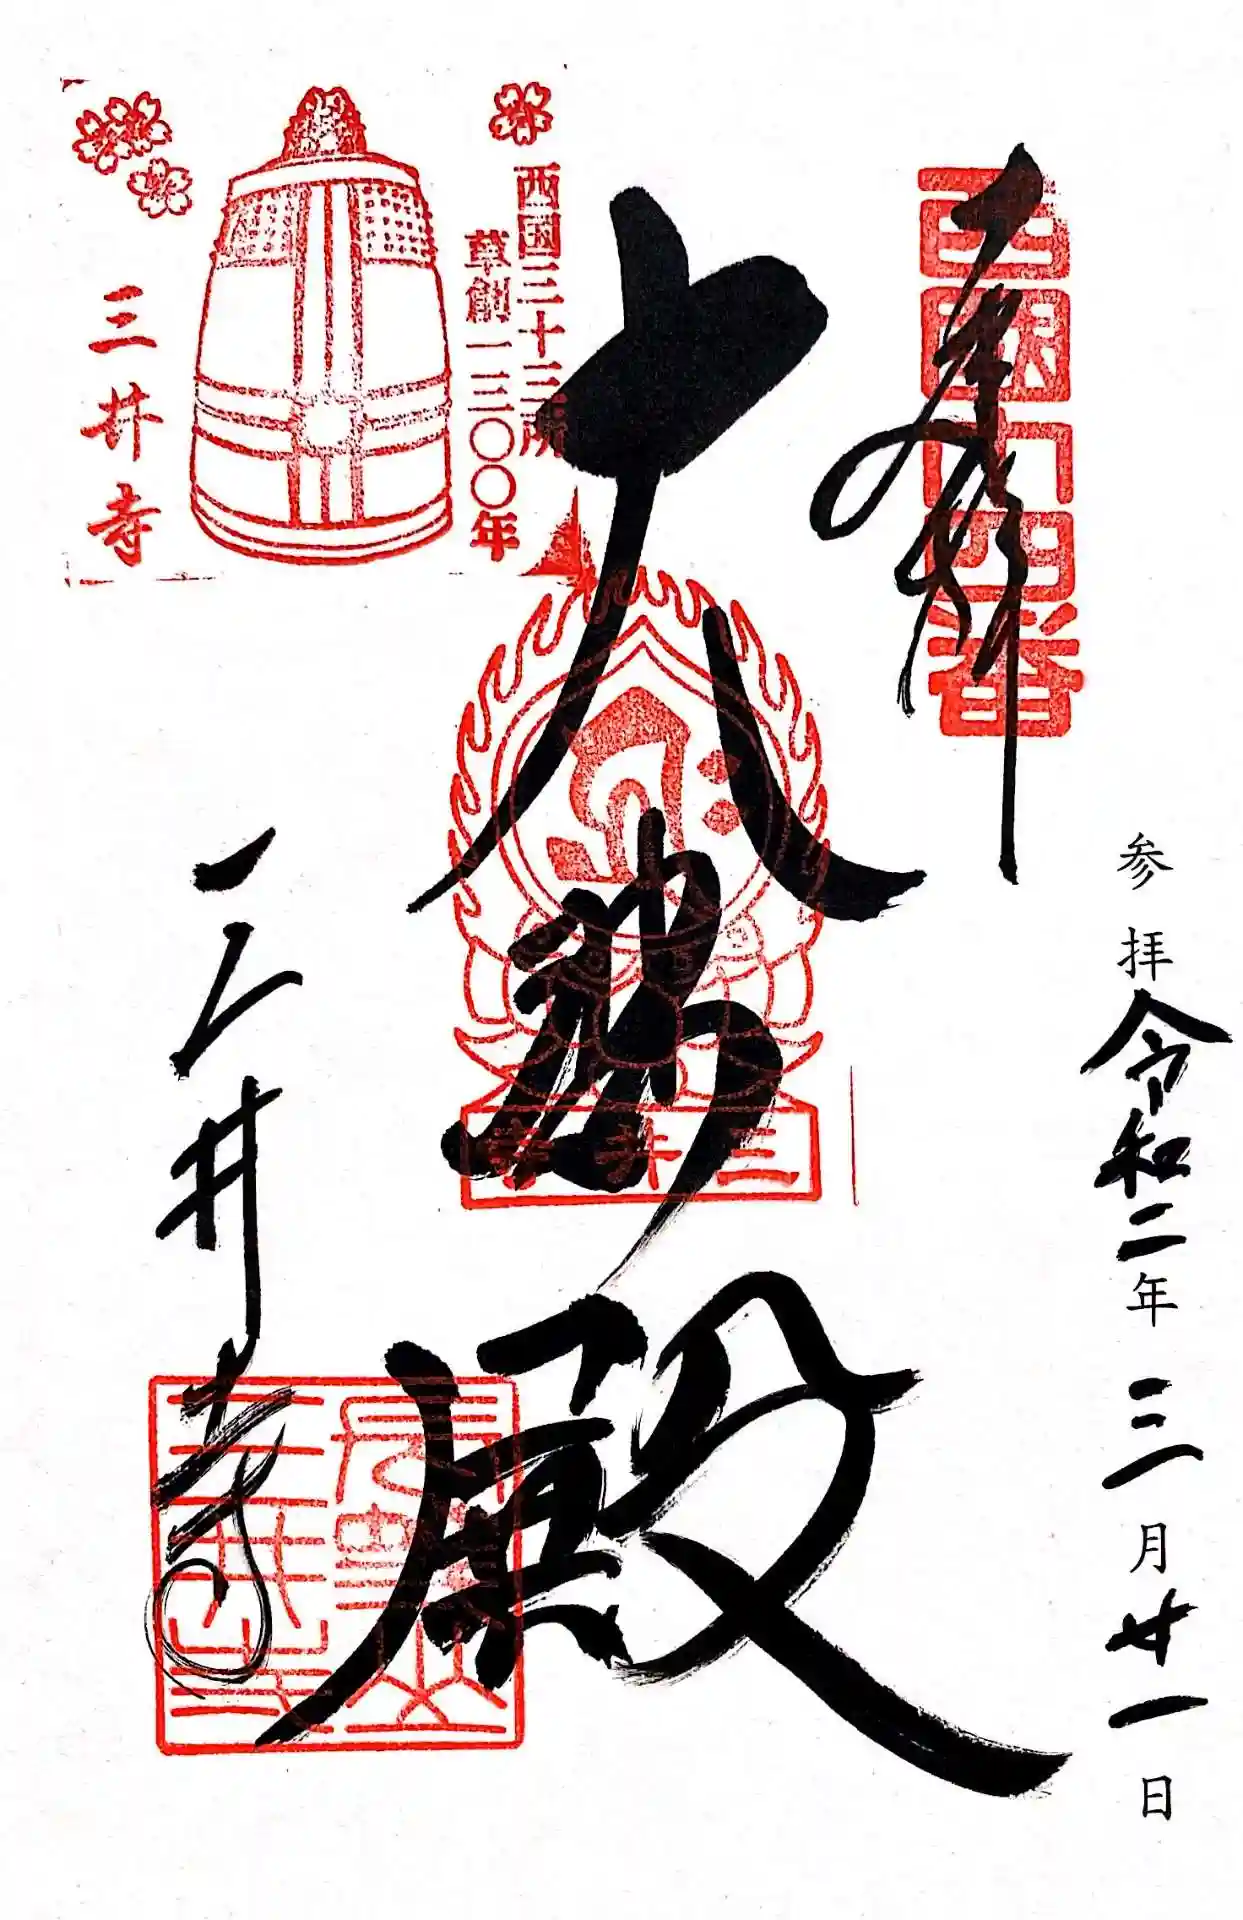 参拝令和二年三月廿一日
奉拝
西国十四番
大悲殿
三井寺
三井寺
西国三十三所
草創一三〇〇年
三井寺